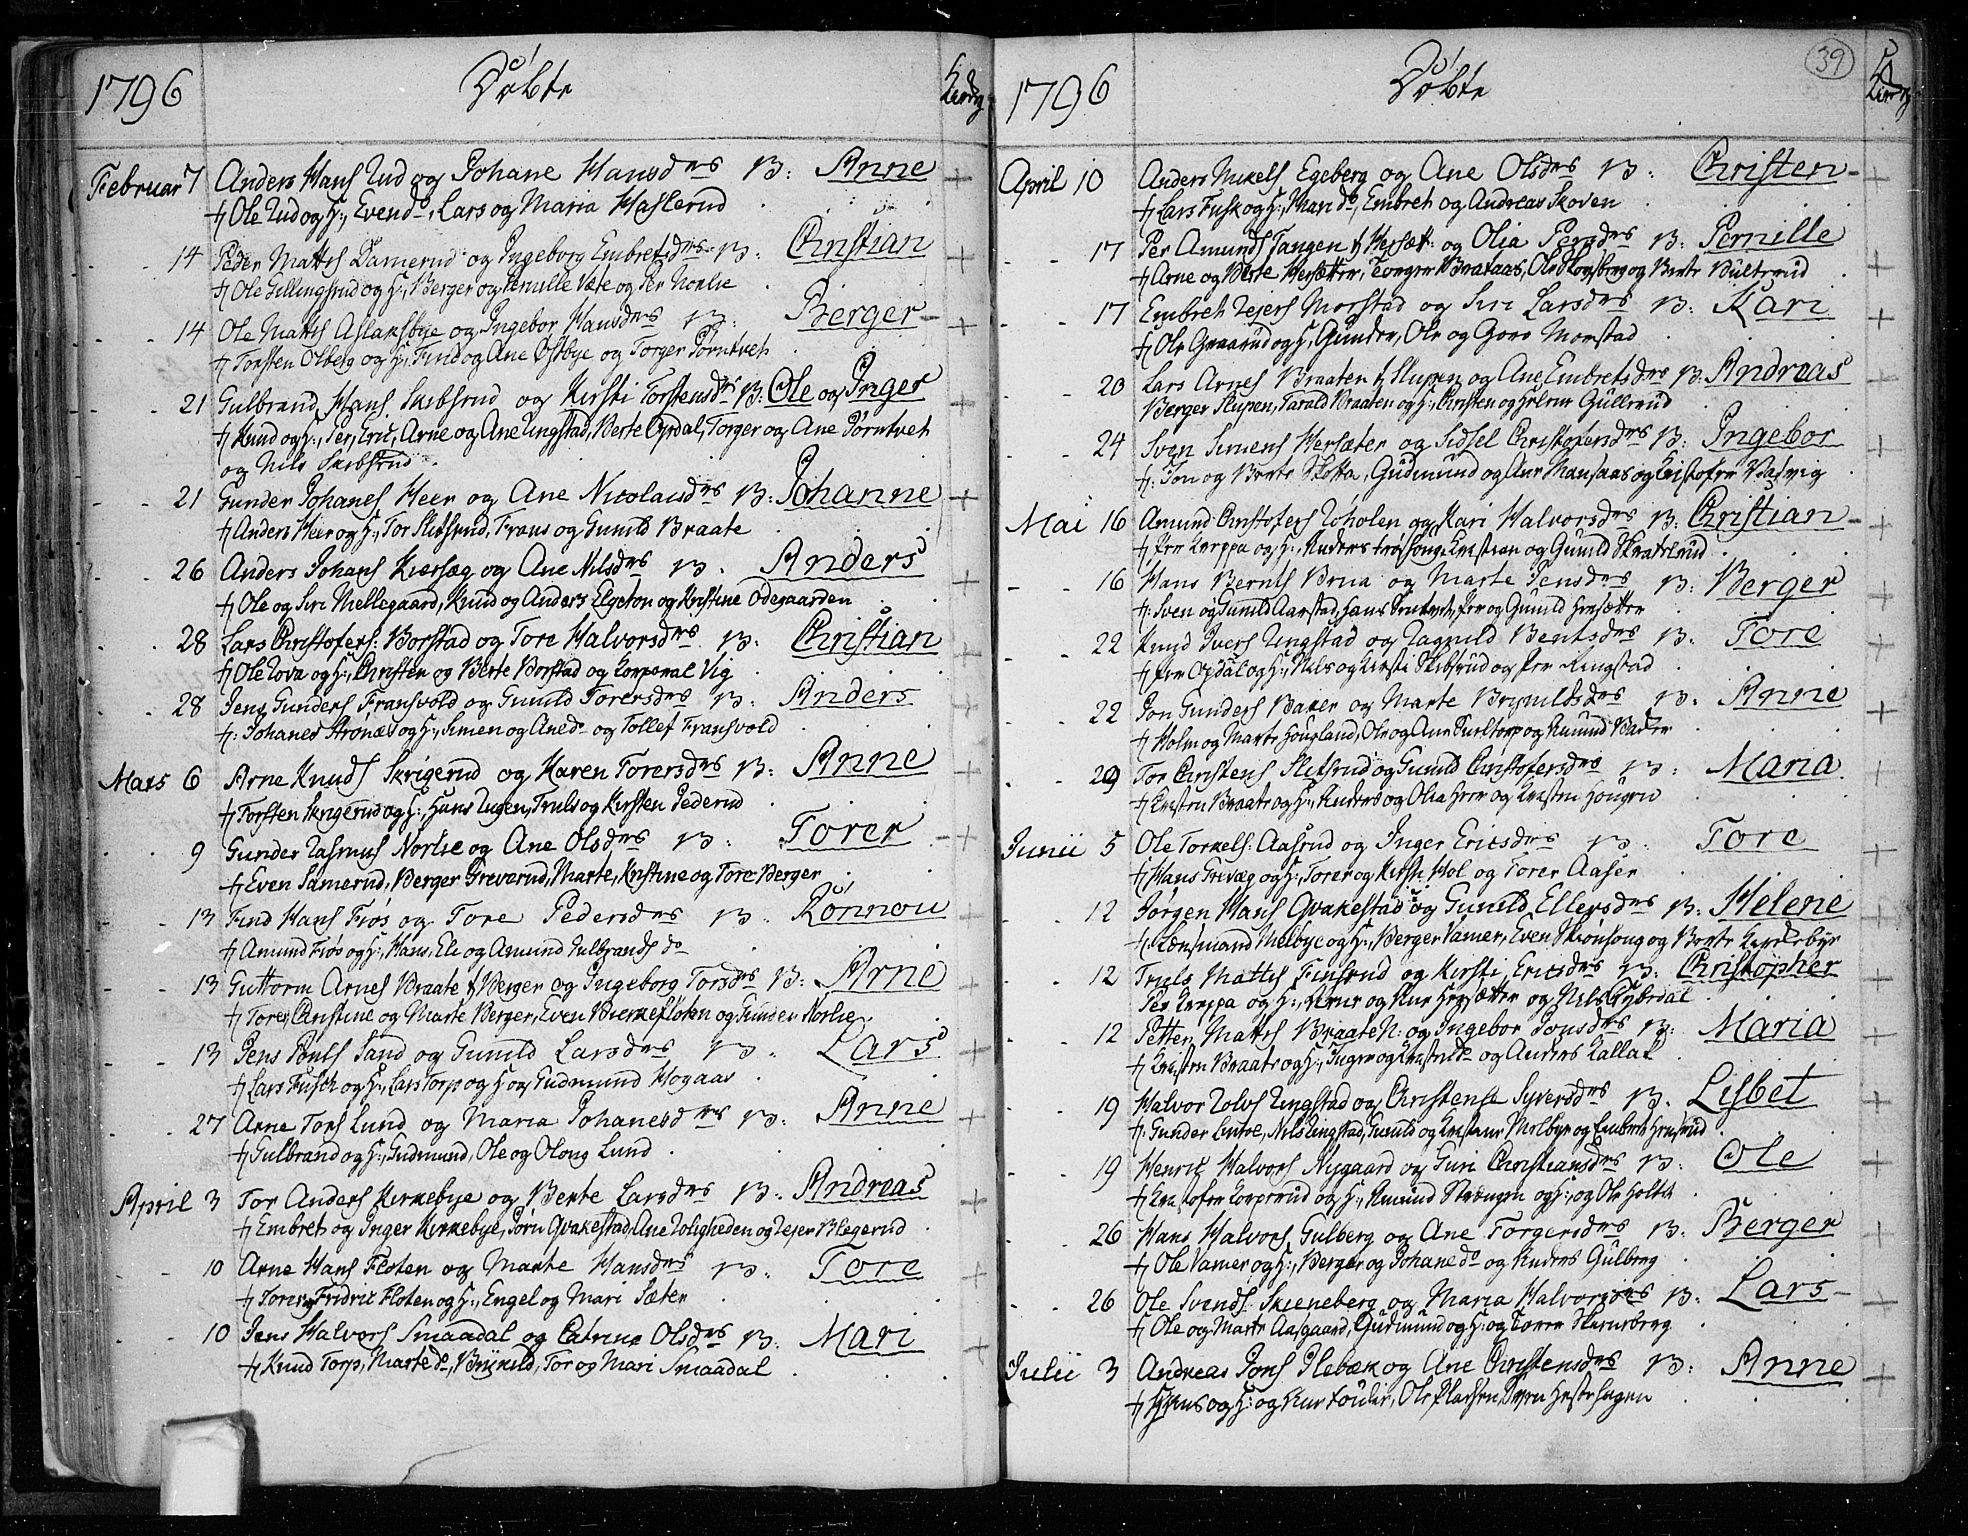 1796 Döbte
Februar 7 Anders Hans Rud og Johane Hansdrs B: Anne
Ole Rud og H:, Even do, Lars og Maria Haslerud
14 Peder Matts Damerud og Ingeborg Embretsdrs B: Christian
Ole Gillingsrud og H:, Berger og Pernille Næte og Per Norlie
14 Ole Matts Aslaksbye og Ingebor Hansdrs B: Berger
Torsten Olberg og H:, Find og Ane Østbye og Torger Pörntvet
21 Gulbrand Hans Skibsrud og Kirsti Torstensdr B: Ole og Inger
Knud og H:, Per, Eric, Arne og Ane Ringstad, Berte Opdal, Torger og Ane Pörntvet
og Nils Skibsrud
21 Gunder Johanes Heer og Ane Nicolaisdrs B: Johanne
Anders Heer og H:, Tor Sletsrud, Frans og Gunild Braate
26 Anders Johans Kiersæg og Ane Nilsdrs B: Anders
Ole og Siri Mellegaard, Knud og Anders Elgeton og Kristine Ødegaarden
28 Lars Christofers: Borstad og Tore Halvorsdrs B: Christian
Ole Tova og H:, Christen og Berte Borstad og Korporal Vig
28 Jens Gunders Fransvold og Gunild Torersdrs B: Anders
Johanes Strönæs og H:, Simen og Ane do og Tollef Fransvold
Mars 6 Arne Knuds Skrigerud og Karen Torersdrs B: Anne
Torsten Skrigerud og H:, Hans Rugen, Truls og Kirsten Pederud
9 Gunder Rasmus Norlie og Ane Olsdrs B: Torer
Even Samerud, Berger Greverud, Marte, Kristine og Tore Berger
13 Find Hans Frøs og Tore Pedersdrs B: Rönnou
Amund Frøs og H:, Hans, Ele og Amund Gulbrands do
13 Guttorm Arnes Braate & Berger og Ingeborg Torsdrs B: Arne
Tore, Christine og Marte Berger, Even Birkefloten og Gunder Norlie
13 Jens Pouls Sand og Gunild Larsdrs B: Lars
Lars Fusch og H:, Lars Torp og H og Gudmund Hogaas
27 Arne Tors Lund og Maria Johanesdrs B: Anne
Gulbrand og H:, Gudmund, Ole og Olong Lund
April 3 Tor Anders Kirkebye og Berte Larsdrs B: Andreas
Embret og Inger Kirkebye, Jörn Qvakestad, Ane Roligheden og Rejer Blegerud
10 Arne Hans Floten og Marte Hansdrs B: Tore
Torer, Fridric Floten og H:, Engel og Mari Sæter
10 Jens Halvors Smaadal og Catrine Olsdrs B: Mari
Knud Torp, Marte do, Brynild, Tor og Mari Smaadal
1796 Döbte 39
April 10 Anders Mikels Egeberg og Ane Olsdrs B: Christen
Lars Fusk og H:, Mari do, Embret og Andreas Skoven
17 Per Amunds Tangen & Hersæt: og Olia Persdrs B: Pernille
Arne og Berte Hersætter, Torger Brataas, Ole Skogsberg og Berte Bulterud
17 Embret Rejers Morstad og Siri Larsdrs B: Kari
Ole Graarud og H, Gunder, Ole og Goro Morstad
20 Lars Arnes Braaten & Slupen og Ane Embretsdrs B: Andreas
Berger Slupen, Tarald Braaten og H:, Christen og Helene Gullerud
24 Sven Simens Hersæter og Sidsel Christofersdrs B: Ingebor
Jon og Berte Skotta, Gudmund og Ane Mansaas og Cristofer Vadvig
Mai 16 Amund Christofers Roholen og Kari Halvorsdrs B: Christian
Per Kreppa og H:, Anders Frösoug, Kristian og Gunild Skattelrud
16 Hans Bernts Brua og Marte Jensdrs B: Berger
Sven og Gunild Aarstad, Hans Brutvet, Per og Gunild Hersætter
22 Knud Ivers Ringstad og Ragnild Bentsdrs B: Tore
Per Opdal og H:, Nils og Kirsti Skibsrud og Per Ringstad
22 Jon Gunders Baker og Marte Brynildsdrs B: Anne
Holm og Marte Hougland, Ole og Ane Surltorp og Amund Baker
29 Tor Christens Sletsrud og Gunild Christofersdrs B: Maria
Kristen Braate og H:, Anders og Olia Heer og Kristen Hougen
Junii 5 Ole Torkels: Aasrud og Inger Ericsdrs B: Tore
Hans Grivæg og H:, Torer og Kirsti Hol og Torer Aaser
12 Jørgen Hans Qvakestad og Gunild Ellersdrs B: Helene
Lensmand Melbye og H:, Berger Vamer, Even Skrönsoug og Berte Kirkebye
12 Truls Matts Finsrud og Kirsti Ericsdrs B: Christopher
Per Kreppa og H:, Arne og Ane Hersætter og Nils Rybrdal
12 Petter Matts Braate N: og Ingebor Jonsdrs B: Maria
Kristen Braate og H:, Inger og Kristen do og Anders Kallak
19 Halvor Rolvs Ringstad og Christense Syversdrs B: Lisbet
Gunder Lunde, Nils Ringstad, Gunild og Kristine Melbye og Embret Hensrud
19 Henric Halvors Nygaard og Guri Christiansdrs B: Ole
Kristofer Korperud og H:, Amund Strengen og H:, og Ole Holth
26 Hans Halvors Gulberg og Ane Torgersdrs B: Berger
Ole Vamer og H:, Berger og Johane do og Anders Gulberg
26 Ole Svends Skieneberg og Maria Halvorsdrs B: Lars
Ole og Marte Aasgaard, Gudmund og H: og Torer Skieneberg
Julii 3 Andreas Jons Plebæk og Ane Christensdrs B: Anne
Hans og H: og Ane Fouler, Ole Pladsen, Sven Hestehagen